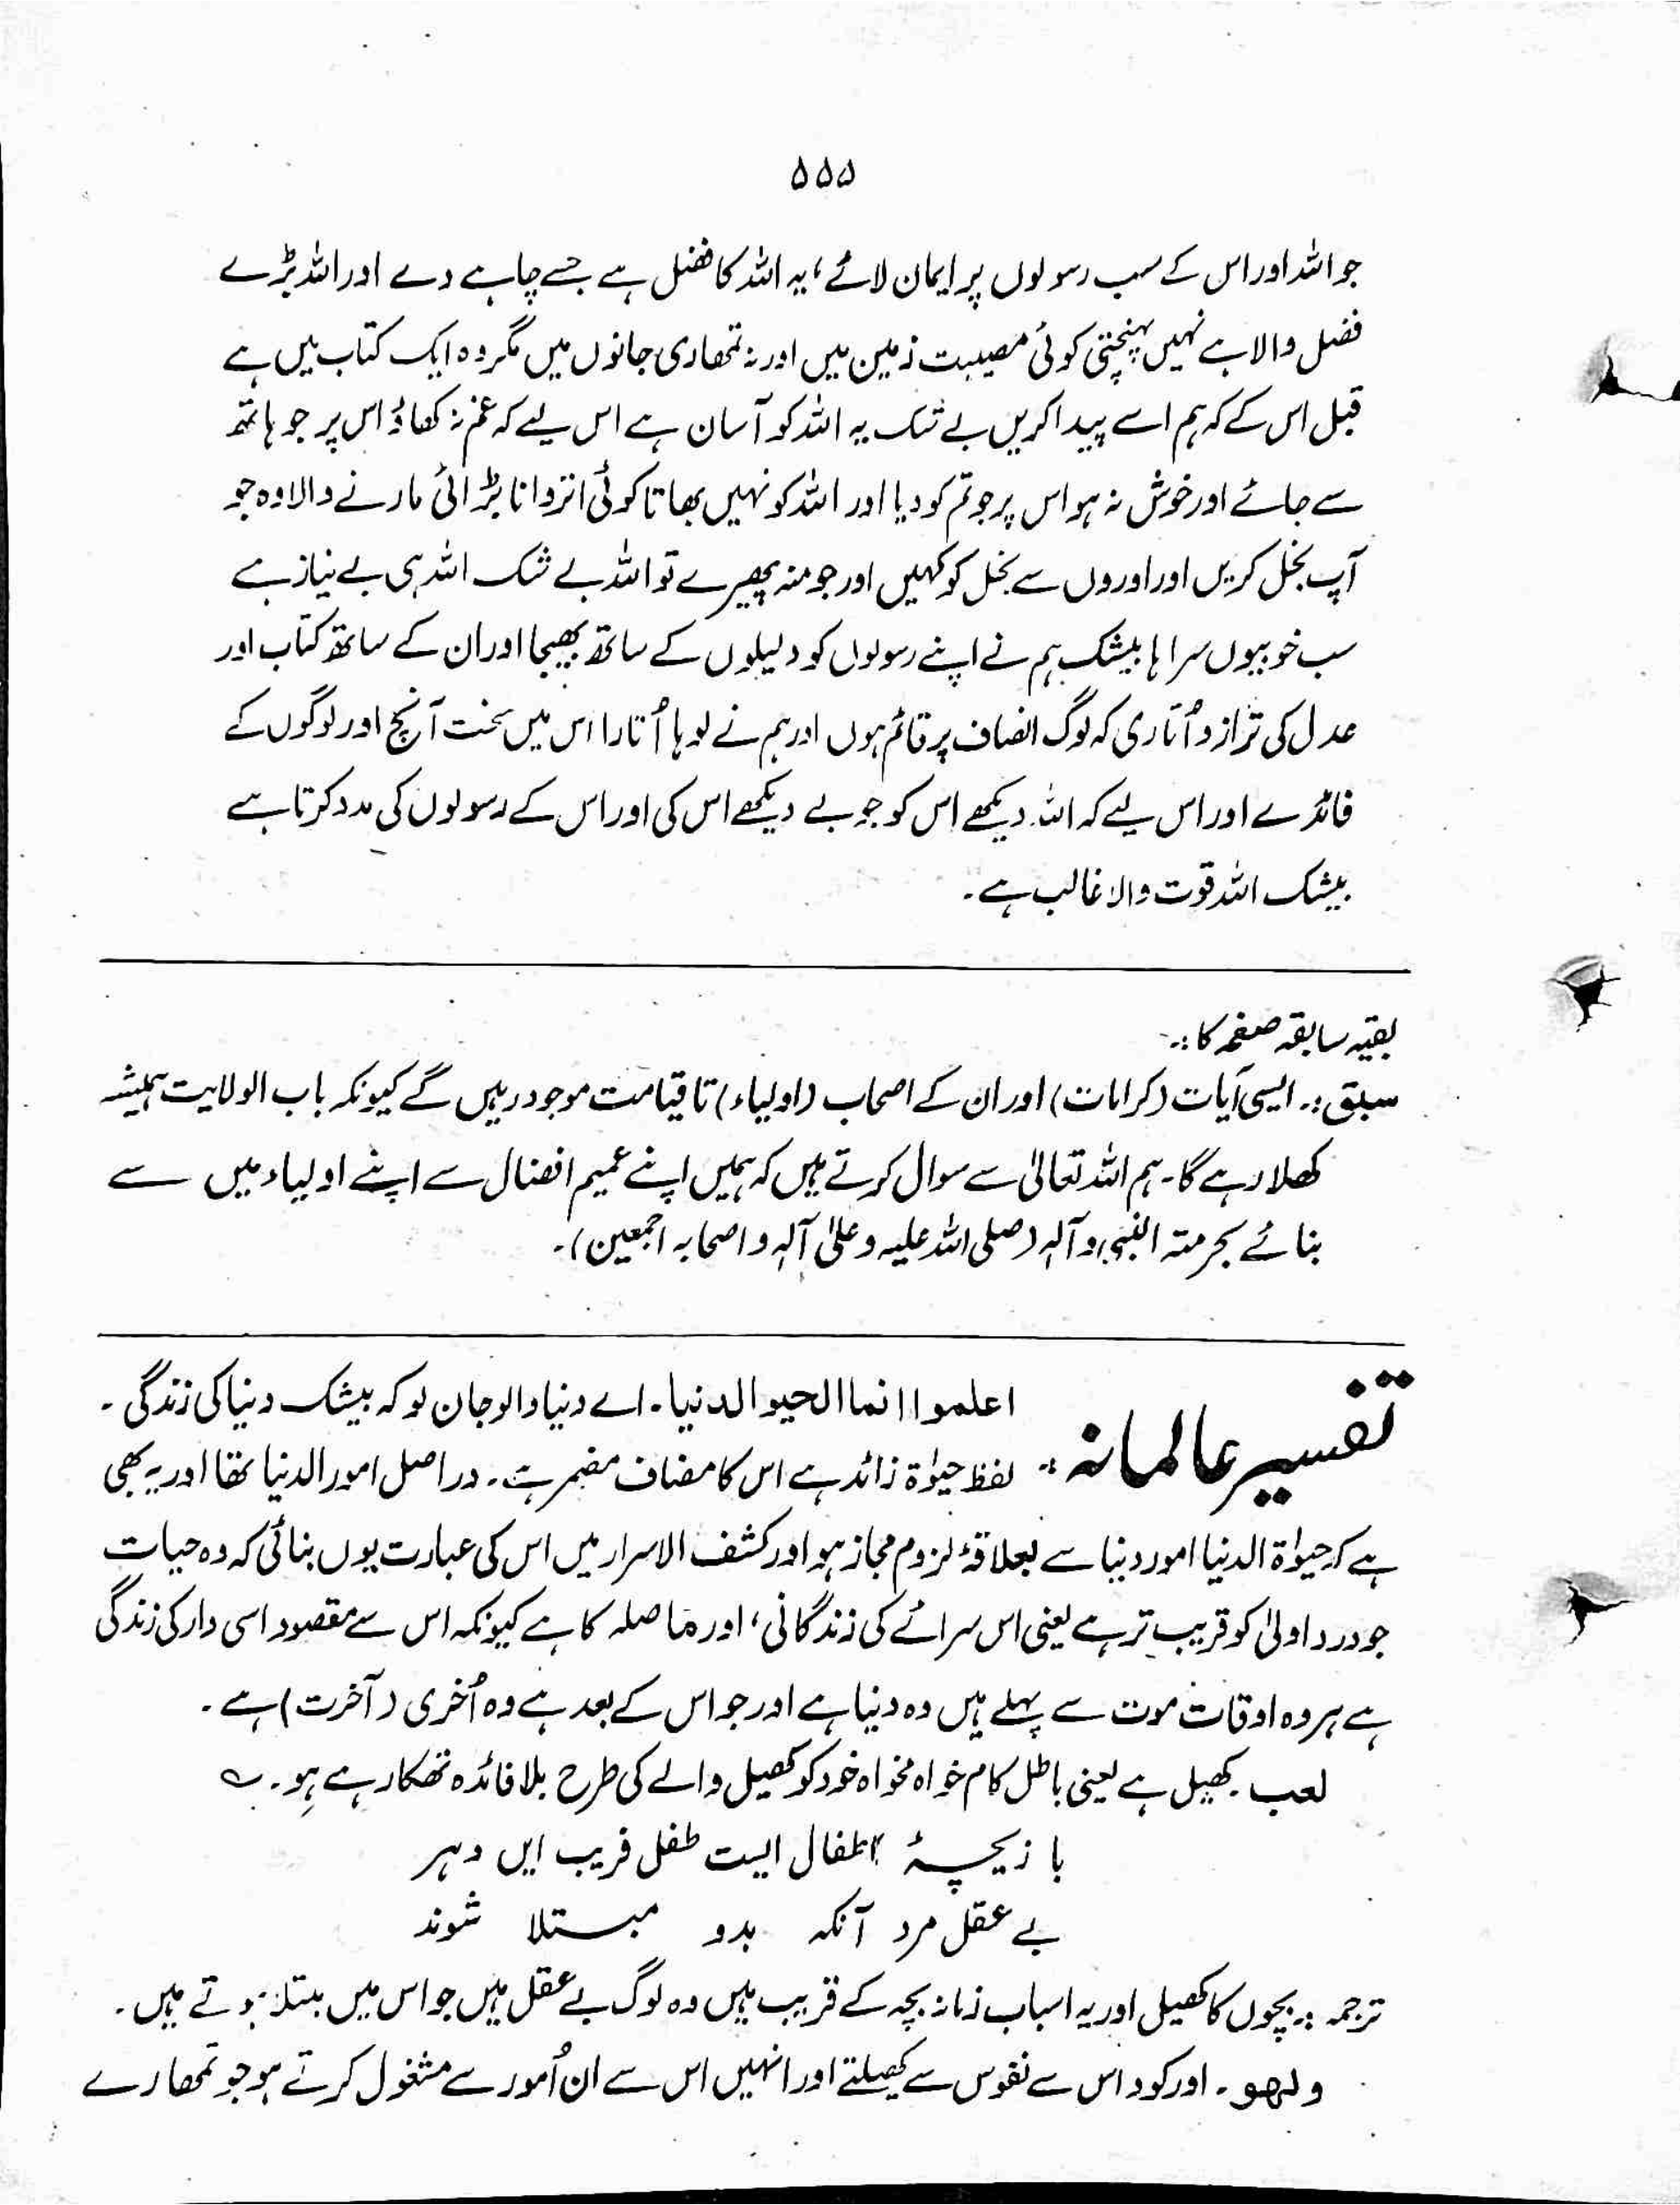 ۵۵۵
جو اللہ اور اس کے سب رسولوں پر ایمان لائے، یہ اللہ کا فضل ہے جسے چاہے دے اور اللہ بڑے
فضل والا ہے نہیں پہنچتی کوئی مصیبت زمین میں اور نہ تمھاری جانوں میں مگر وہ ایک کتاب میں ہے
قبل اس کے کہ ہم اسے پیدا کریں بے شک یہ اللہ کو آسان ہے اس لیے کہ غم نہ کھاؤ اس پر جو ہاتھ
سے جائے اور خوش نہ ہو اس پر جو تم کو دیا اور اللہ کو نہیں بھاتا کوئی اتروانا بڑائی مارنے والا وہ جو
آپ بخل کریں اور اوروں سے بخل کو کہیں اور جو منہ پھیرے تو اللہ بے شک اللہ ہی بے نیاز ہے
سب خوبیوں سراہا بیشک ہم نے اپنے رسولوں کو دلیلوں کے ساتھ بھیجا اور ان کے ساتھ کتاب اور
عدل کی ترازو اُتاری کہ لوگ انصاف پر قائم ہوں اور ہم نے لوہا اُتارا اس میں سخت آنچ اور لوگوں کے
فائدے اور اس لیے کہ اللہ دیکھے اس کو جو بے دیکھے اس کی اور اس کے رسولوں کی مدد کرتا ہے
بیشک اللہ قوت والا غالب ہے۔
بقیہ سابقہ صفحہ کا :۔
سبق :۔ ایسی آیات (کرامات) اور ان کے اصحاب (اولیاء) تا قیامت موجود رہیں گے کیونکہ باب الولایت ہمیشہ
کھلا رہے گا۔ ہم اللہ تعالیٰ سے سوال کرتے ہیں کہ ہمیں اپنے عمیم افضال سے اپنے اولیاء میں سے
بنائے بحرمتہ النبی وآلہٖ (صلی اللہ علیہ وعلیٰ آلہٖ واصحابہ اجمعین)۔
تفسیر عالمانہ :۔ اعلموا انما الحیو الدنیا۔ اے دنیا والو جان لو کہ بیشک دنیا کی زندگی۔
لفظ حیوٰۃ زائد ہے اس کا مضاف مضمر ہے۔ دراصل امور الدنیا تھا اور یہ بھی
ہے کہ حیوٰۃ الدنیا امور دنیا سے بعلاقۂ لزوم مجاز ہو اور کشف الاسرار میں اس کی عبارت یوں بنائی کہ وہ حیات
جو درد اولیٰ کو قریب تر ہے یعنی اس سرائے کی زندگانی، اور ماصلہ کا ہے کیونکہ اس سے مقصود اسی دار کی زندگی
ہے ہر وہ اوقات موت سے پہلے ہیں وہ دنیا ہے اور جو اس کے بعد ہے وہ اُخری (آخرت) ہے۔
لعب۔ کھیل ہے یعنی باطل کام خواہ مخواہ خود کو کھیل والے کی طرح بلا فائدہ تھکا رہے ہو۔ ؎
بازیچۂ اطفال ایست طفل فریب ایں دہر
بے عقل مرد آنکہ بدو مبتلا شوند
ترجمہ :۔ بچوں کا کھیل اور یہ اسباب زمانہ بچہ کے قریب ہیں وہ لوگ بے عقل ہیں جو اس میں مبتلا ہوتے ہیں۔
ولھو۔ اور کود اس سے نفوس سے کھیلتے اور انہیں اس سے ان اُمور سے مشغول کرتے ہو جو تمھارے